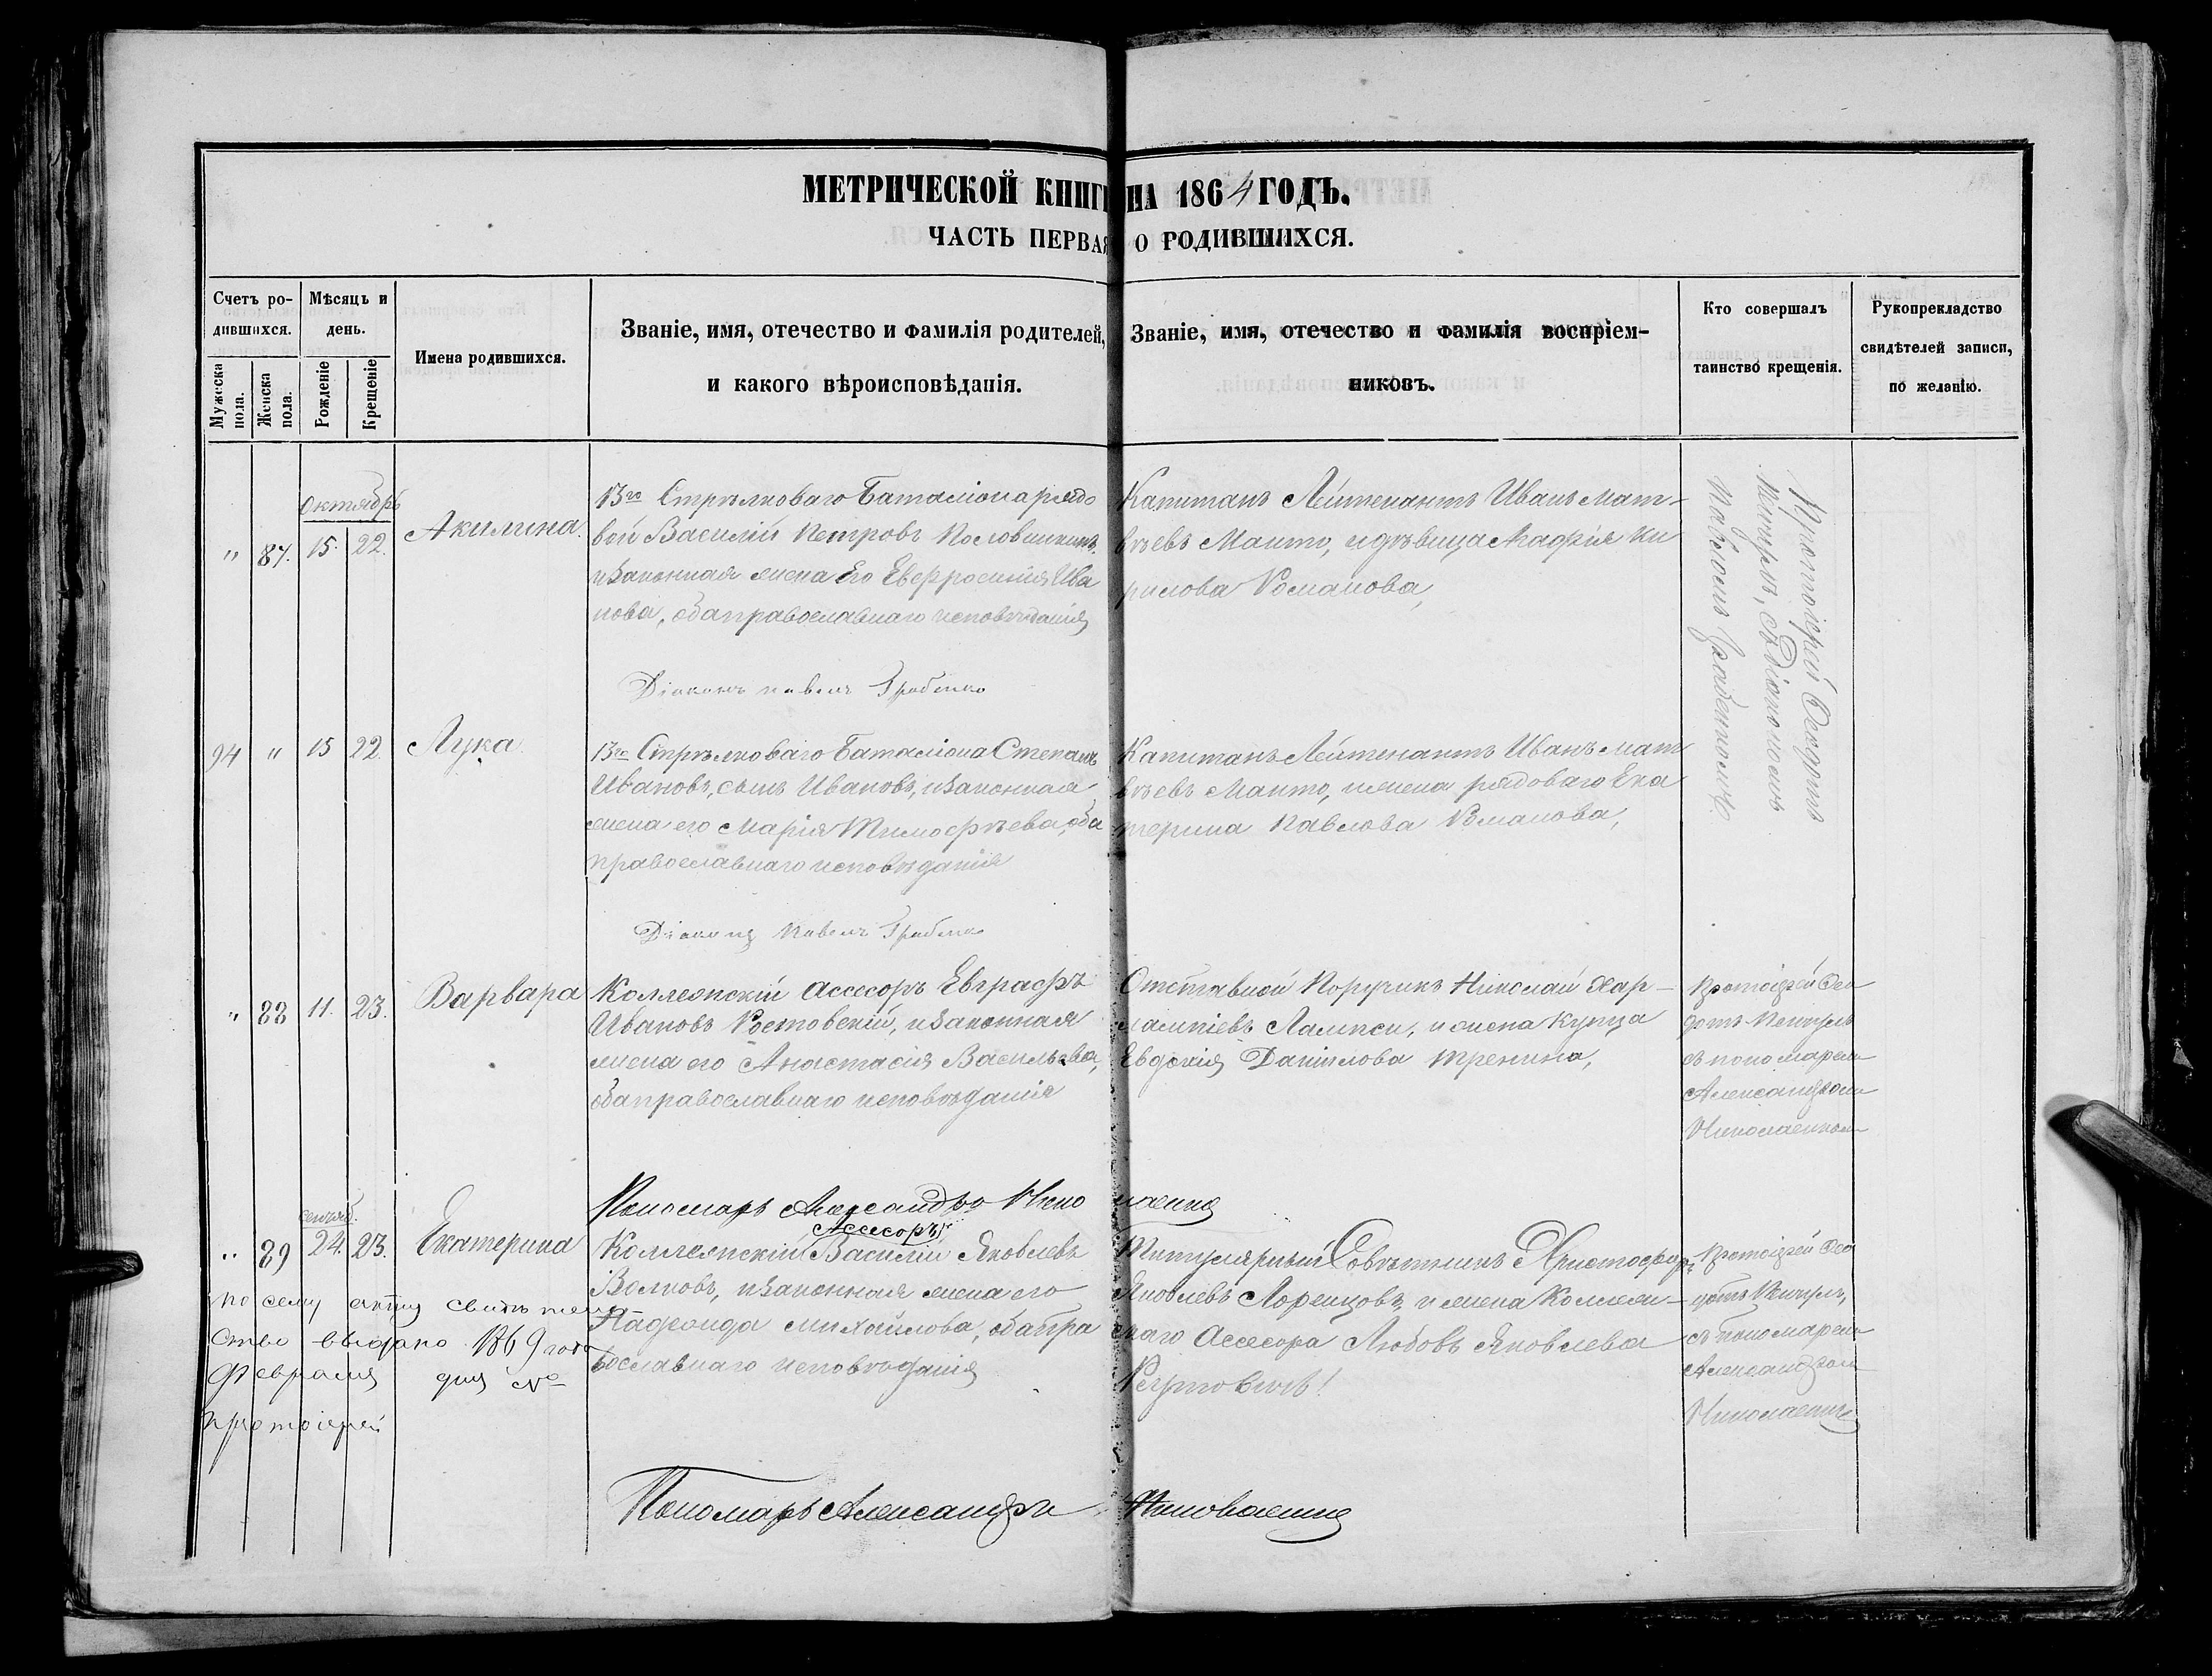 МЕТРИЧЕСКОЙ КНИГИ НА 1864 ГОДЪ.
ЧАСТЬ ПЕРВАЯ О РОДИВШИХСЯ.
Счетъ ро-
дившихся.
Мужеска
пола.
Женска
пола.
Мѣсяцъ и
день.
Рожденіе
Крещеніе
Имена родившихся.
Званіе, имя, отечество и фамилія родителей,
и какого вѣроисповѣданія.
Званіе, имя, отечество и фамилія воспріем-
никовъ.
Кто совершалъ
таинство крещенія.
Рукоприкладство
свидѣтелей записи,
по желанію.
Октябрь
" 87. 15. 22.
Акилина.
13го Стрѣлковаго Баталіона рядо
вой Василій Петровъ
и законная жена его Евфросинія Ива
нова, оба православнаго исповѣданія
Капитанъ Лейтенантъ Иванъ Мат-
вѣевъ Манто, и дѣвица Марфія Ки
рилова Романова,
Протоіерей Ѳеодотъ
съ Діакономъ
Павломъ Грабенкомъ
Діаконъ Павелъ Грабенко
94 " 15 22
Лука
13го Стрѣлковаго Баталіона Степанъ
Ивановъ, сынъ Ивановъ, и законная
жена его Марія Тимофѣева, оба
православнаго исповѣданія
Капитанъ Лейтенантъ Иванъ Мат
вѣевъ Манто, и жена рядоваго Ека
терина Павлова Романова,
Діаконъ Павелъ Грабенко
" 88 11. 23.
Варвара
Коллежскій Ассесоръ Евграфъ
Ивановъ Ростовскій, и законная
жена его Анастасія Васильева,
оба православнаго исповѣданія
Отставной Поручикъ Николай Хар-
лампіевъ Лампси, и жена купца
Евдокія Даніилова Тренина,
Протоіерей Ѳео
дотъ
съ пономаремъ
Александромъ
Николаенкомъ
Пономарь Александръ Николаенко
сентяб.
" 89 24. 23.
Екатерина
Ассесоръ
Коллежскій Василій Яковлевъ
Волковъ, и законная жена его
Надежда Михайлова, оба пра
вославнаго исповѣданія
Титулярный Совѣтникъ Христофоръ
Яковлевъ Лоренцовъ, и жена Коллеж-
скаго Ассесора Любовь Яковлева
Протоіерей Ѳео
дотъ
съ пономаремъ
Александромъ
Николаенко
по сему акту свидѣтель
ство выдано 1869 года
Февраля дня №
протоіерей
Пономарь Александръ Николаенко